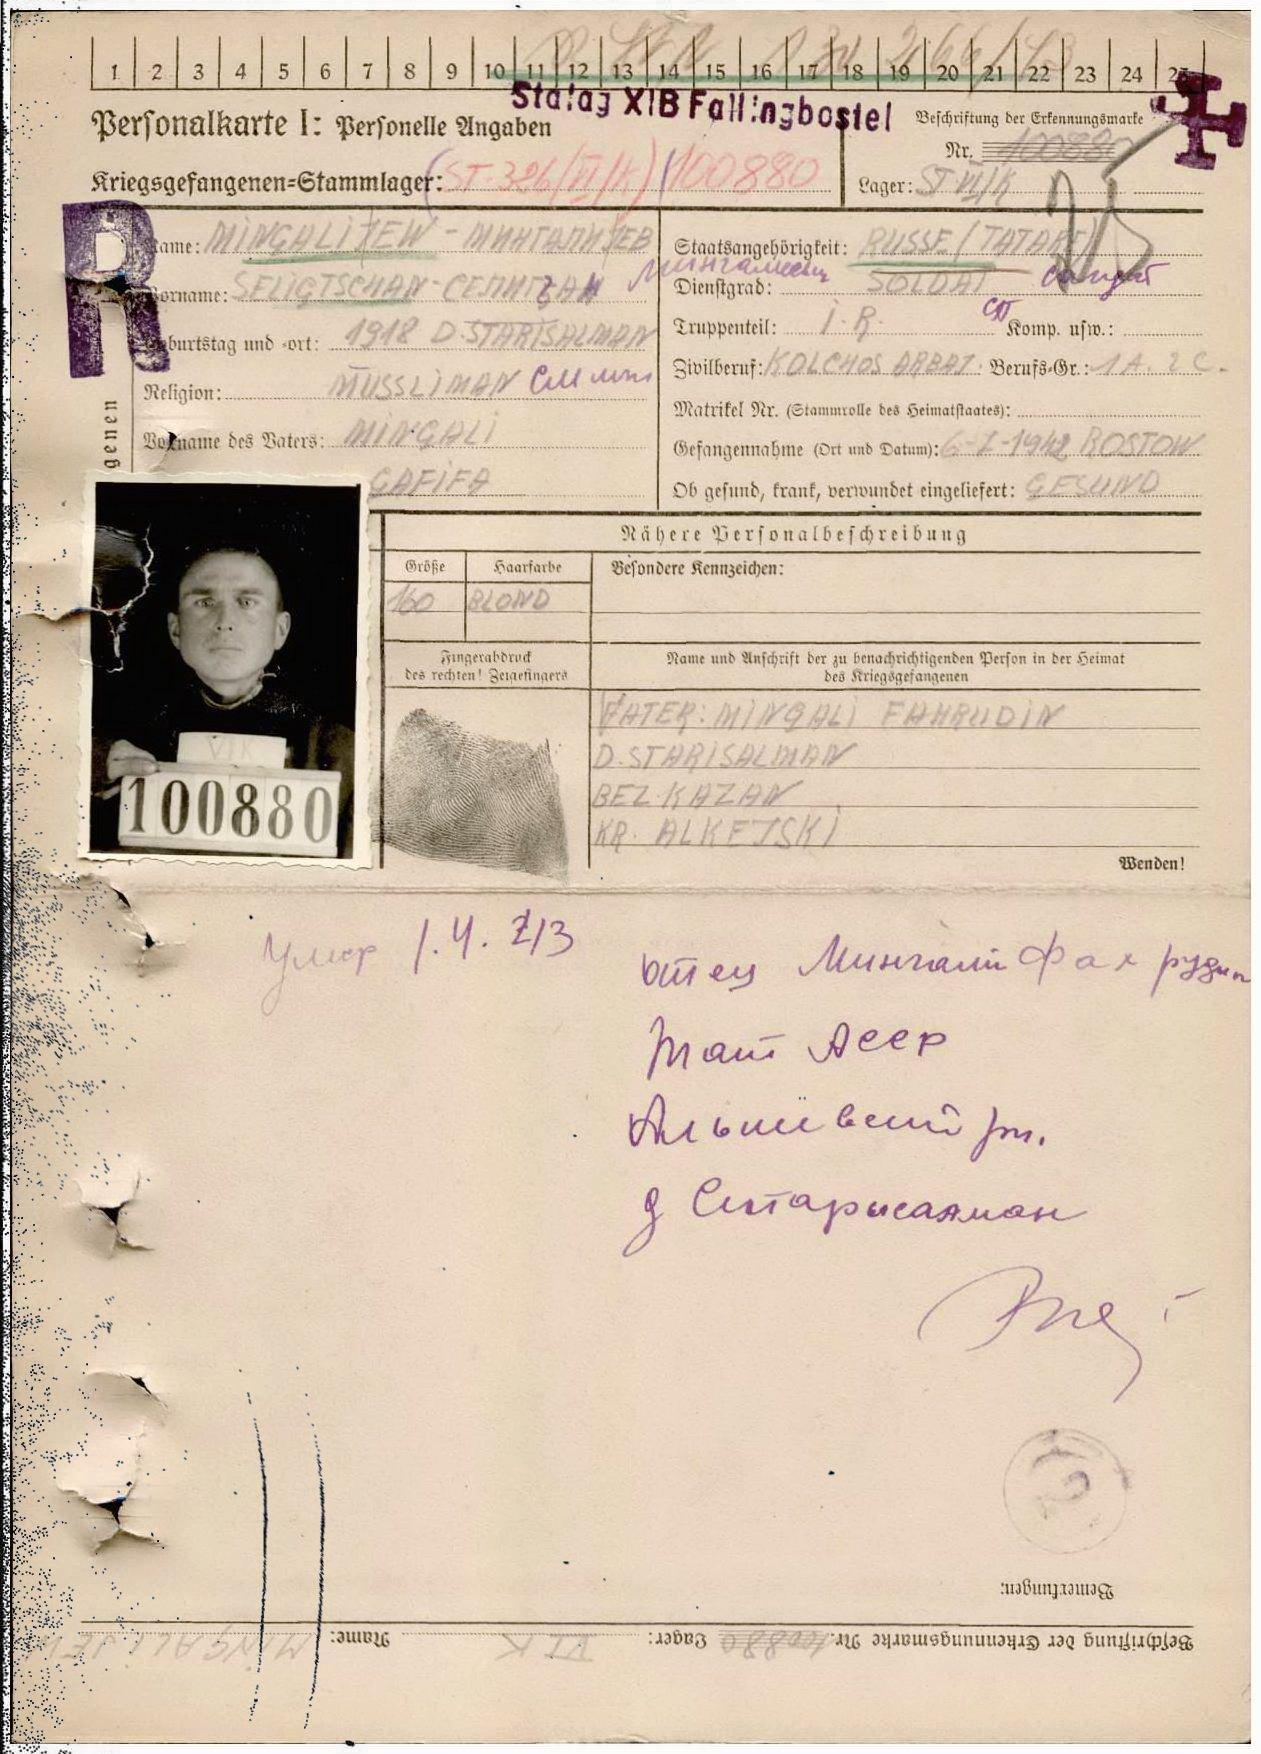 1 2 3 4 5 6 7 8 9 10 11 12 13 14 15 16 17 18 19 20 21 22 23 24 25
Stalag XIB Fallingbostel
Personalkarte I: Personelle Angaben
Beschriftung der Erkennungsmarke
Nr. 100880
Kriegsgefangenen-Stammlager: (ST-326/VI/K) 100880
Lager: ST VI/K
R
Name: MINGALIJEW - МИНГАЛИЕВ
Staatsangehörigkeit: RUSSE/TATARE/
Vorname: SELIGTSCHAN
Dienstgrad: SOLDAT солдат
Geburtstag und -ort: 1918 D. STARISALMAN
Truppenteil: I. R. сп Komp. usw.:
Zivilberuf: KOLCHOS ARBAT. Berufs-Gr.: 1 A. 2 C.
Religion: MUSSLIMAN
Matrikel Nr. (Stammrolle des Heimatstaates):
Vorname des Vaters: MINGALI
Gefangennahme (Ort und Datum): 1942 ROSTOW
genen
GAFIFA
Ob gesund, krank, verwundet eingeliefert: GESUND
Nähere Personalbeschreibung
Größe Haarfarbe Besondere Kennzeichen:
160 BLOND
Fingerabdruck
des rechten! Zeigefingers
Name und Anschrift der zu benachrichtigenden Person in der Heimat
des Kriegsgefangenen
VATER: MINGALI FAHRUDIN
D. STARISALMAN
BEZ. KAZAN
KR. ALKEJSKI
VIK
100880
Wenden!
Умер
отец Мингали Фахрудин
Тат АССР
д Старысалман
Bemerkungen:
Beschriftung der Erkennungsmarke Nr. 100880 Lager: VI K Name: MINGALIJEW